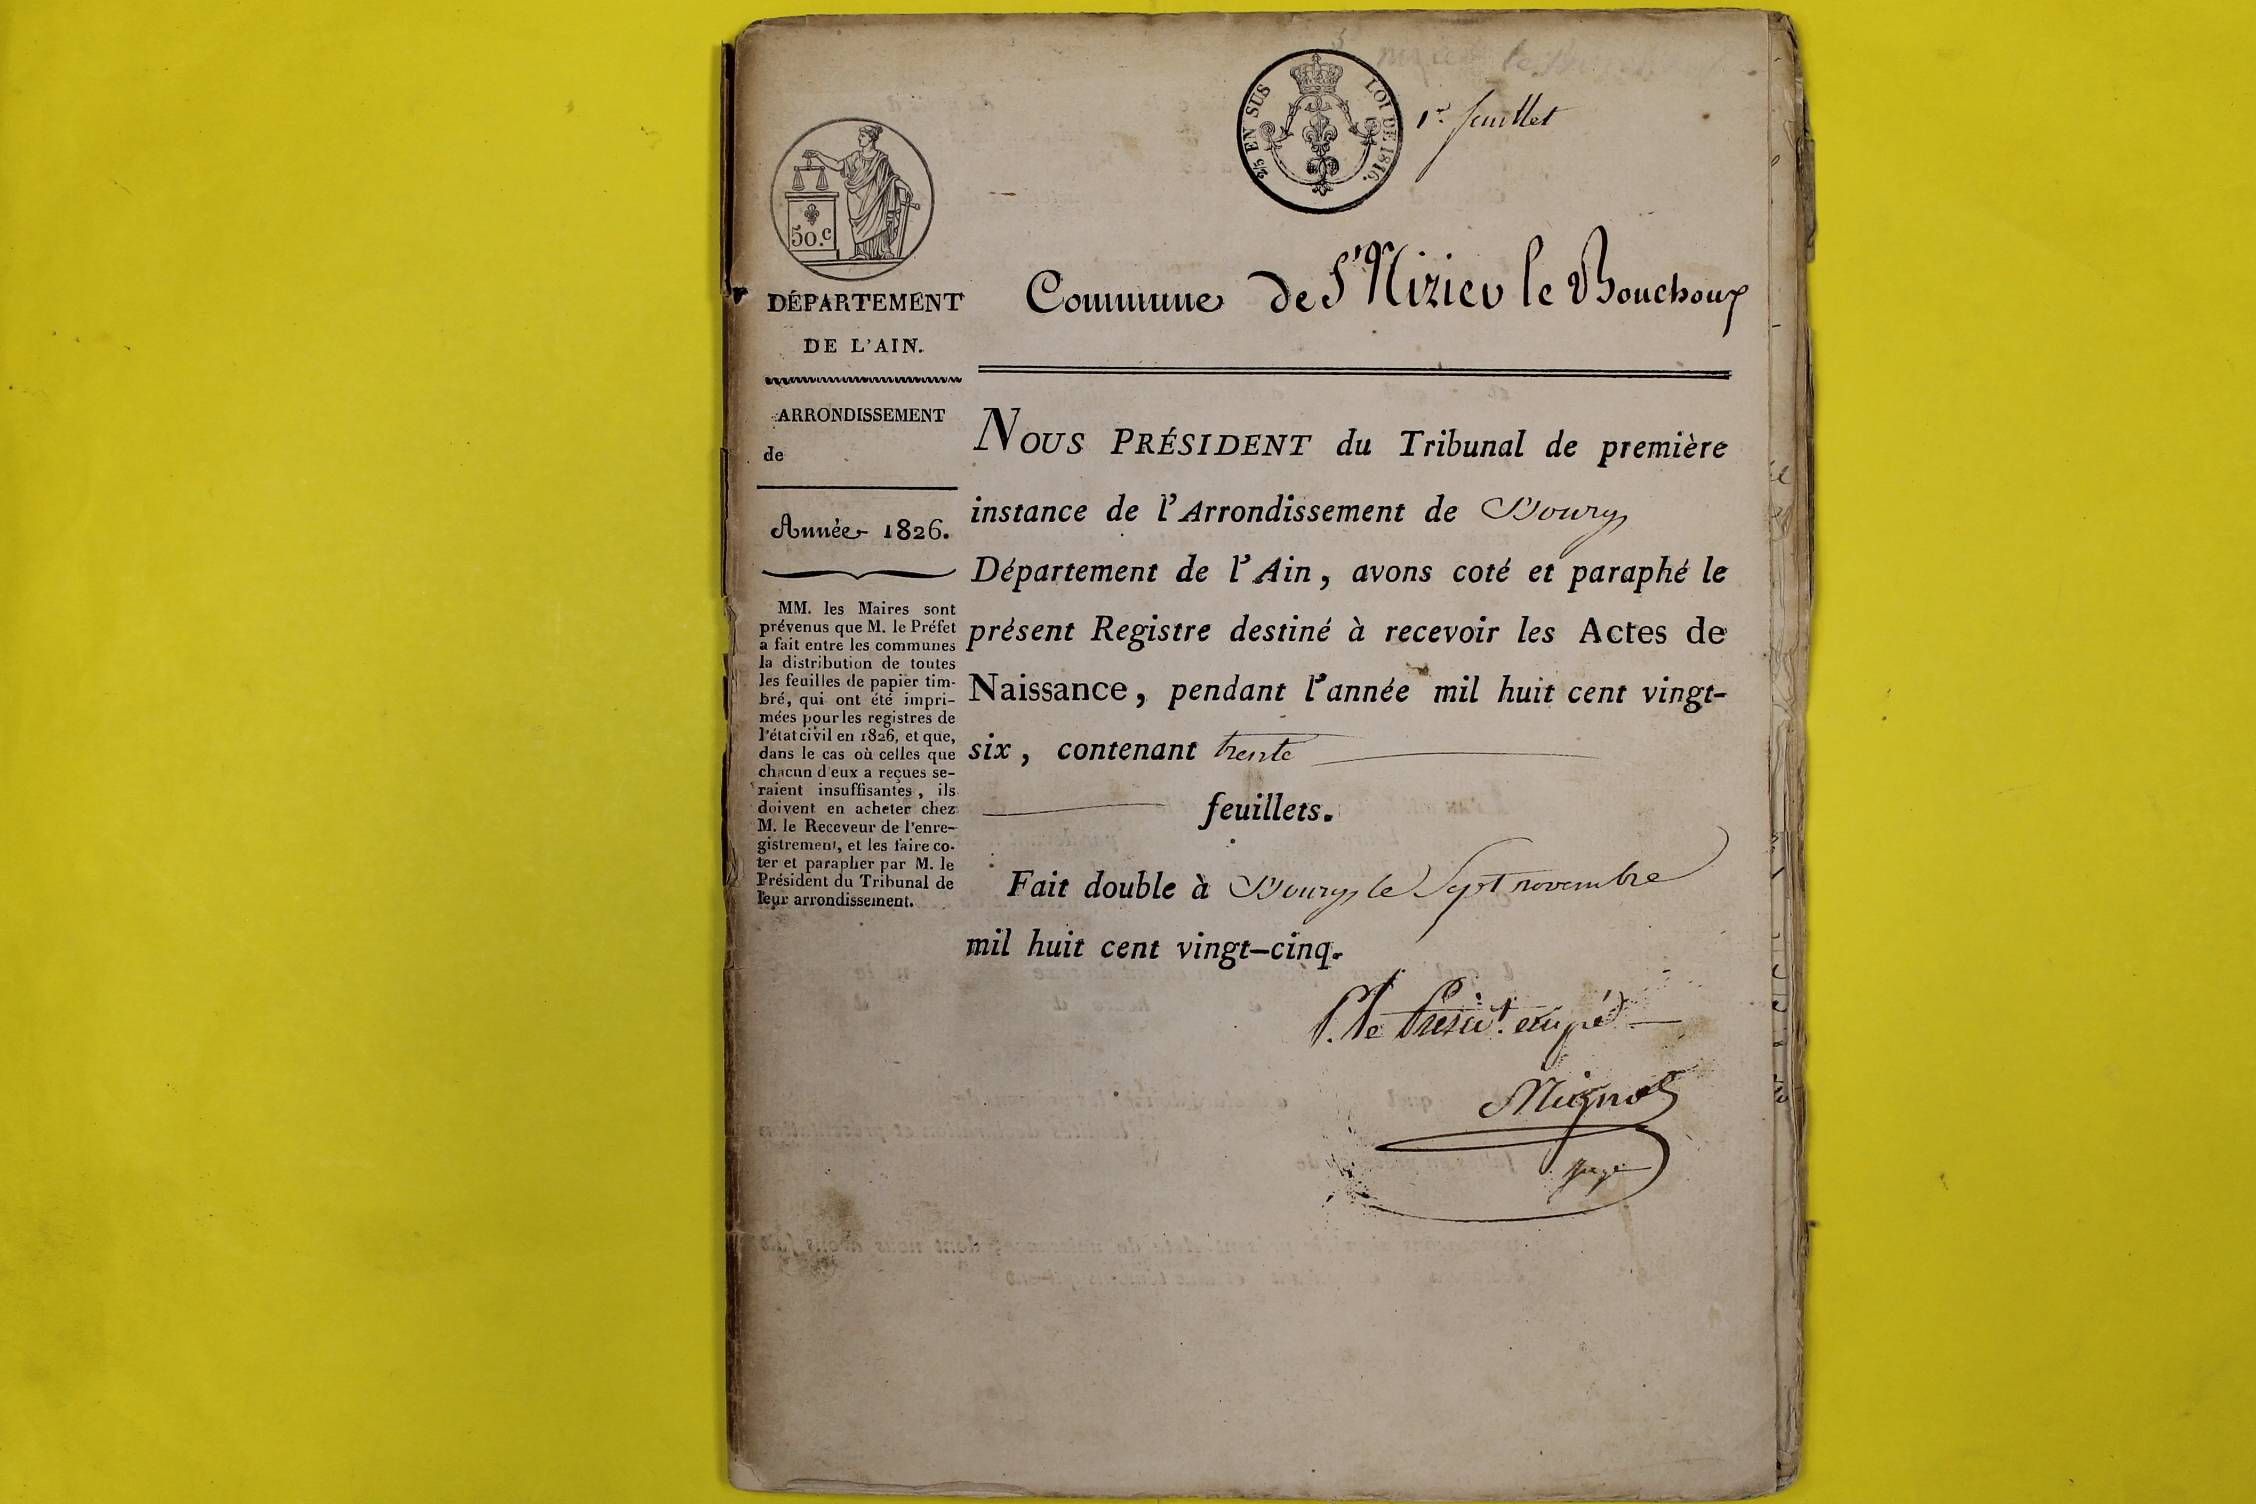 2/5 EN SUS LOI DE 1816.
1er feuillet
50.c
DÉPARTEMENT
DE L'AIN.
ARRONDISSEMENT
de
Année 1826.
MM. les Maires sont
prévenus que M. le Préfet
a fait entre les communes
la distribution de toutes
les feuilles de papier tim-
bré, qui ont été impri-
mées pour les registres de
l'état civil en 1826, et que,
dans le cas où celles que
chacun d'eux a reçues se-
raient insuffisantes, ils
doivent en acheter chez
M. le Receveur de l'enre-
gistrement, et les faire co-
ter et parapher par M. le
Président du Tribunal de
leur arrondissement.
Commune de St Nizier le Bouchoux
NOUS PRÉSIDENT du Tribunal de première
instance de l'Arrondissement de Bourg
Département de l'Ain, avons coté et paraphé le
présent Registre destiné à recevoir les Actes de
Naissance, pendant l'année mil huit cent vingt-
six, contenant trente
feuillets.
Fait double à Bourg le Sept novembre
mil huit cent vingt-cinq.
P. le Présidt. empé
juge